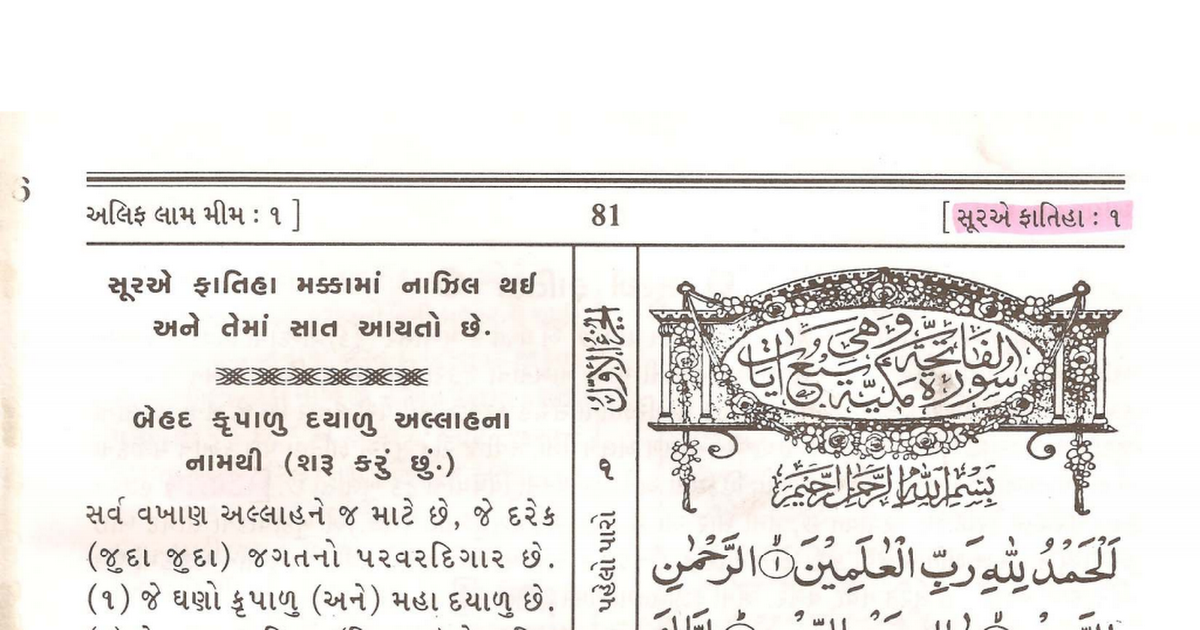 અલિફ લામ મીમ : ૧ ]
81
[ સૂરએ ફાતિહા : ૧
સૂરએ ફાતિહા મક્કામાં નાઝિલ થઈ
અને તેમાં સાત આયતો છે.
બેહદ કૃપાળુ દયાળુ અલ્લાહના
નામથી (શરૂ કરું છું.)
સર્વ વખાણ અલ્લાહને જ માટે છે, જે દરેક
(જુદા જુદા) જગતનો પરવરદિગાર છે.
(૧) જે ઘણો કૃપાળુ (અને) મહા દયાળુ છે.
૧
પહેલો પારો
سورة الفاتحة مكية وهي سبع ايات
بِسْمِ اللهِ الرَّحْمٰنِ الرَّحِيْمِ
اَلْحَمْدُ لِلّٰهِ رَبِّ الْعٰلَمِيْنَ ۝۱ الرَّحْمٰنِ